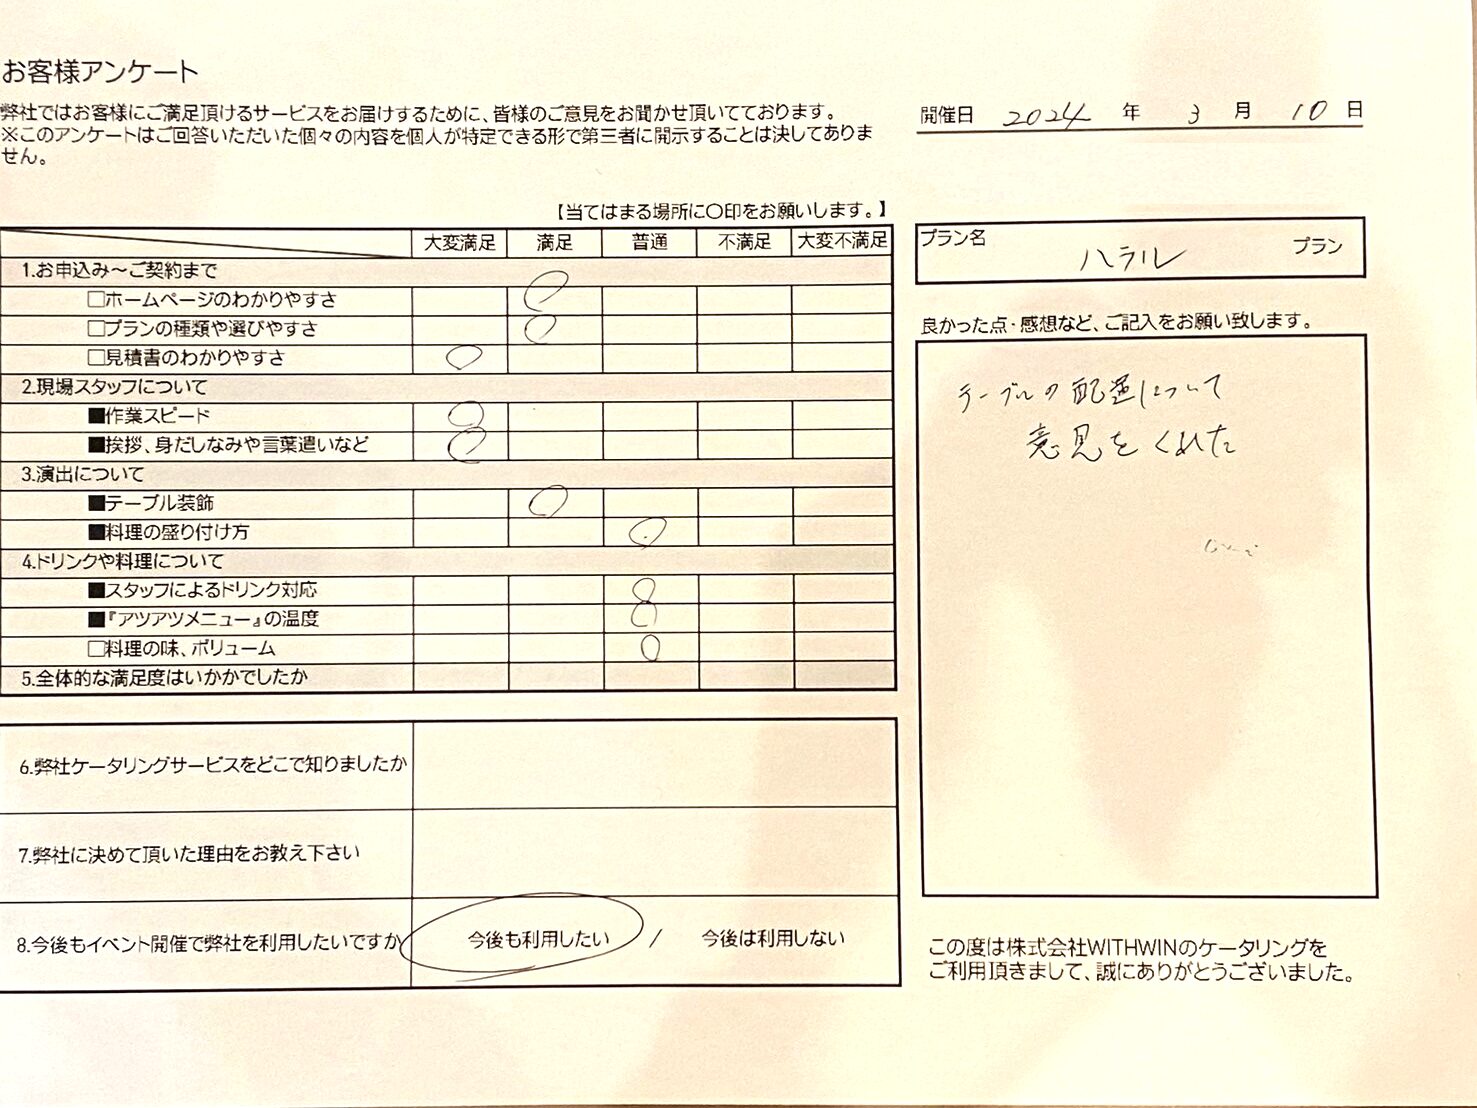 お客様アンケート
弊社ではお客様にご満足頂けるサービスをお届けするために、皆様のご意見をお聞かせ頂いてております。
※このアンケートはご回答いただいた個々の内容を個人が特定できる形で第三者に開示することは決してありま
せん。
開催日 2024 年 3 月 10 日
【当てはまる場所に〇印をお願いします。】
大変満足 満足 普通 不満足 大変不満足
1.お申込み～ご契約まで
□ホームページのわかりやすさ
□プランの種類や選びやすさ
□見積書のわかりやすさ
2.現場スタッフについて
■作業スピード
■挨拶、身だしなみや言葉遣いなど
3.演出について
■テーブル装飾
■料理の盛り付け方
4.ドリンクや料理について
■スタッフによるドリンク対応
■『アツアツメニュー』の温度
□料理の味、ボリューム
5.全体的な満足度はいかかでしたか
6.弊社ケータリングサービスをどこで知りましたか
7.弊社に決めて頂いた理由をお教え下さい
8.今後もイベント開催で弊社を利用したいですか 今後も利用したい / 今後は利用しない
プラン名 ハラル プラン
良かった点・感想など、ご記入をお願い致します。
テーブルの配置について
意見をくれた
この度は株式会社WITHWINのケータリングを
ご利用頂きまして、誠にありがとうございました。